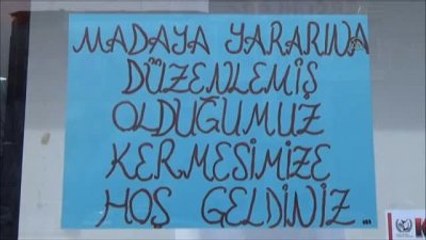 MADAYA YARARINA
DÜZENLEMİŞ
OLDUĞUMUZ
KERMESİMİZE
HOŞ GELDİNİZ...